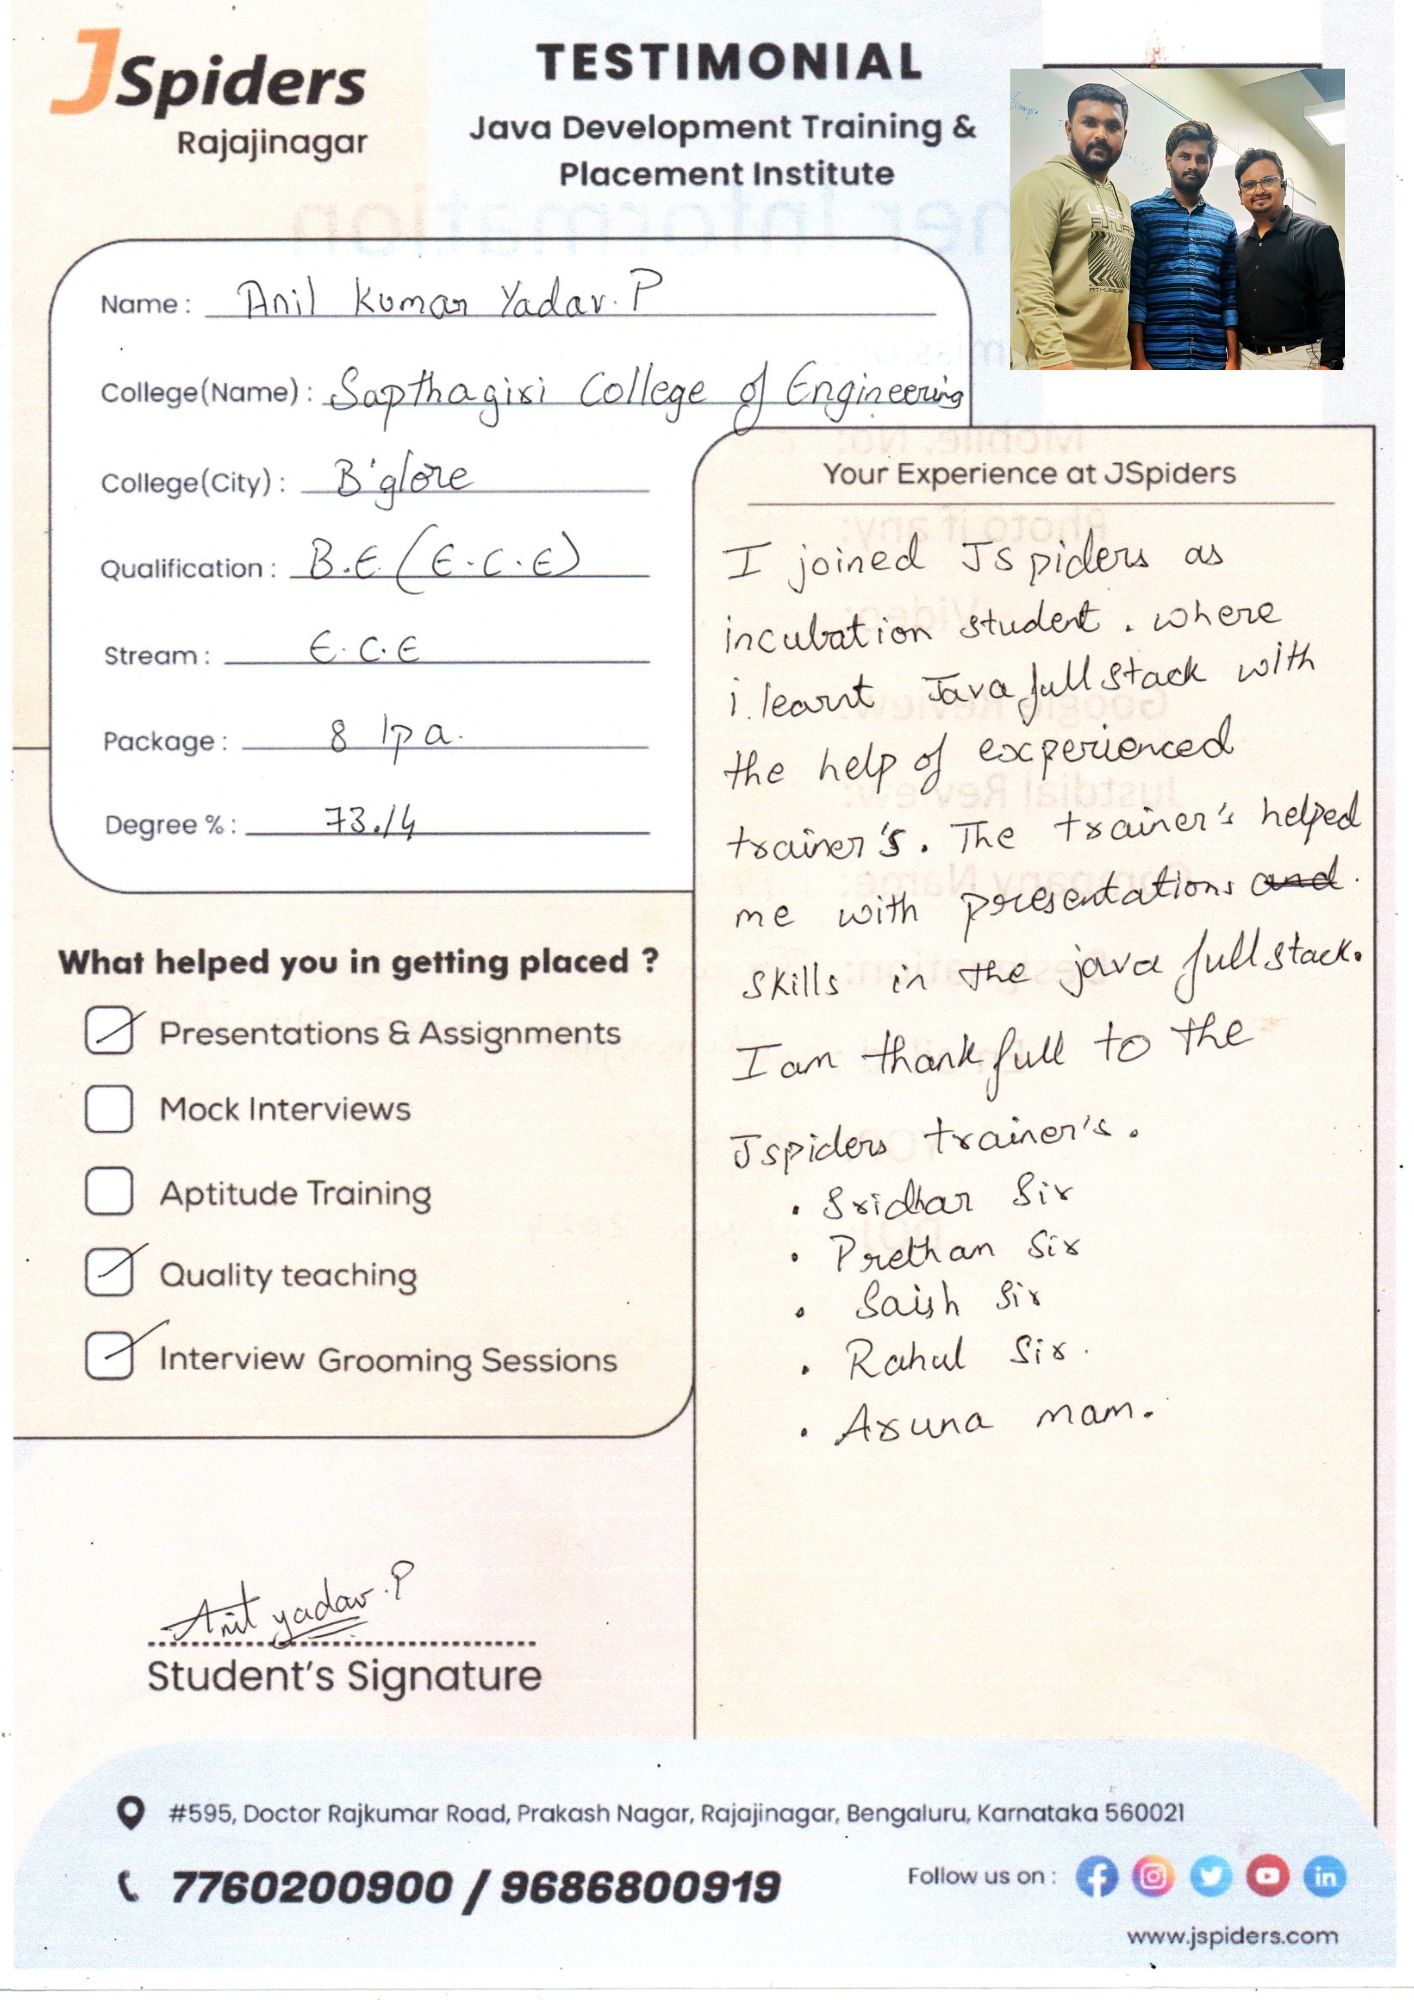 JSpiders
Rajajinagar
TESTIMONIAL
Java Development Training &
Placement Institute
Name : Anil Kumar Yadav. P
College(Name) : Sapthagiri College of Engineering
College(City) : B'glore
Qualification : B.E. (E.C.E)
Stream : E.C.E
Package : 8 lpa.
Degree % : 73.14
What helped you in getting placed ?
Presentations & Assignments
Mock Interviews
Aptitude Training
Quality teaching
Interview Grooming Sessions
Anil yadav.P
Student's Signature
Your Experience at JSpiders
I joined JSpiders as
incubation student. where
i learnt Java full stack with
the help of experienced
trainer's. The trainer's helped
me with presentations and.
skills in the java full stack.
I am thankfull to the
Jspiders trainer's.
• Sridhar Sir
• Prethan Sir
• Saish Sir
• Rahul Sir.
• Aruna mam.
#595, Doctor Rajkumar Road, Prakash Nagar, Rajajinagar, Bengaluru, Karnataka 560021
7760200900 / 9686800919
Follow us on :
www.jspiders.com